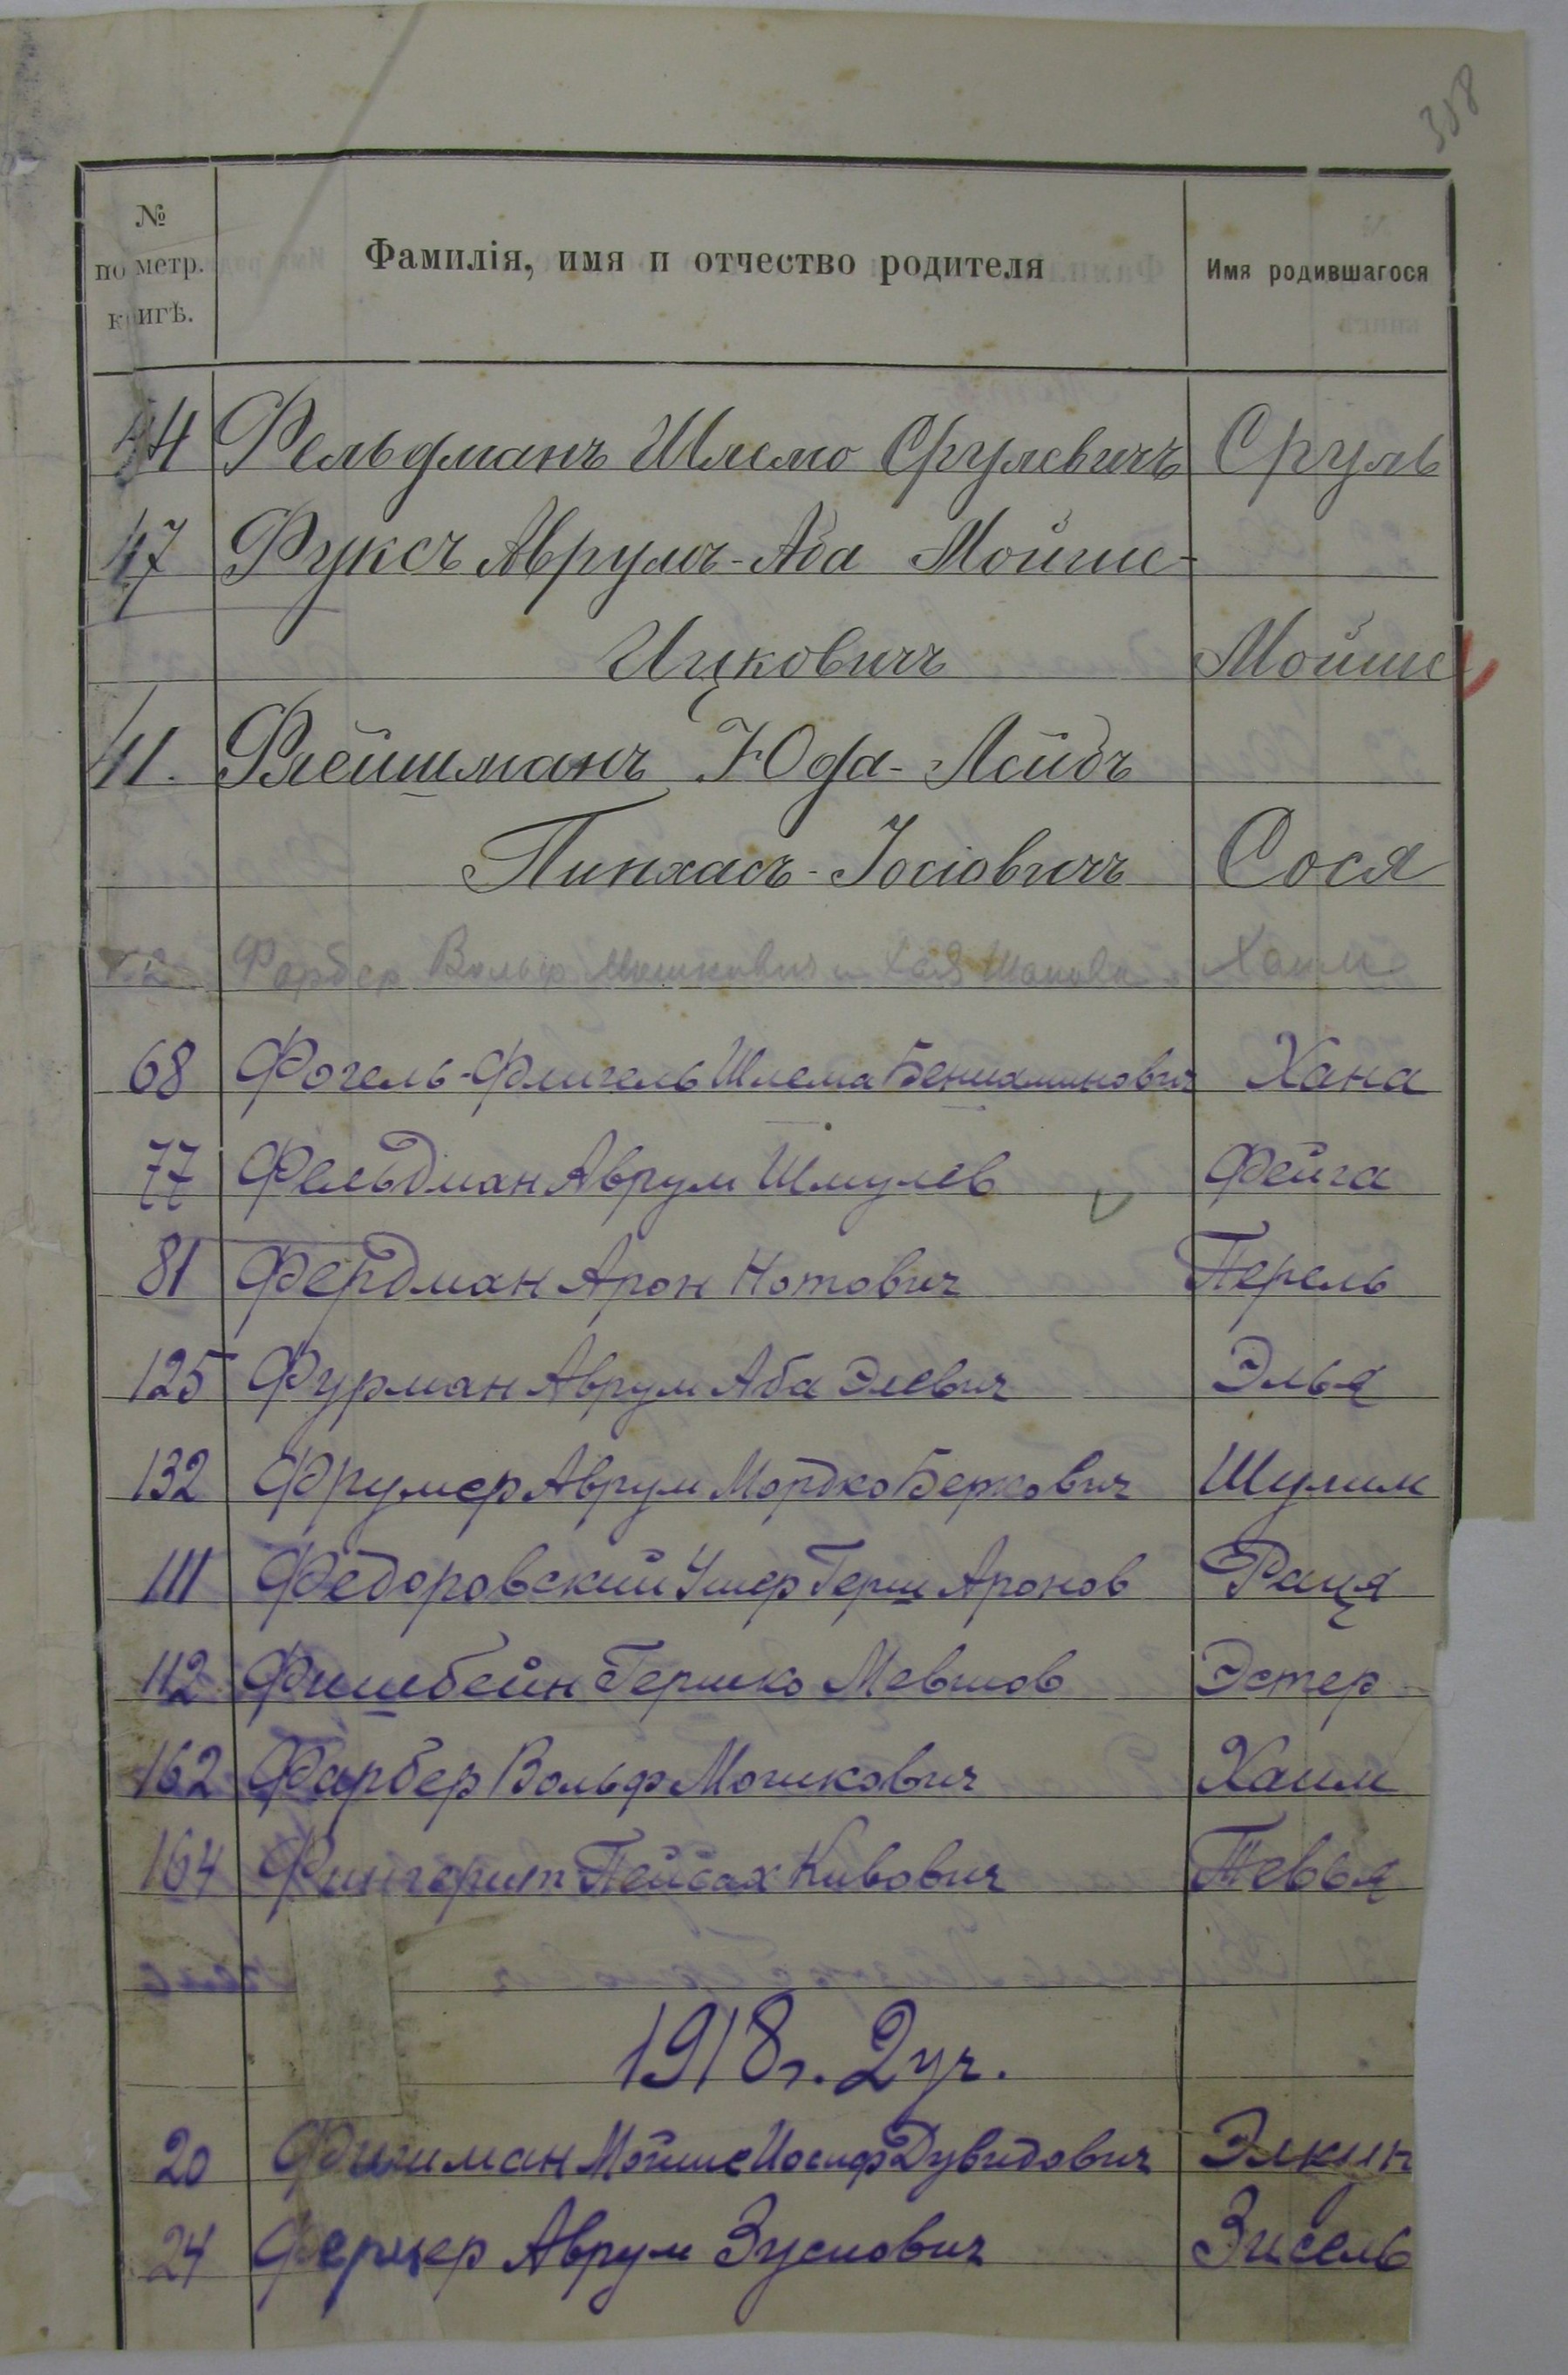 358
№ по метр. книгѣ. Фамилія, имя и отчество родителя Имя родившагося
44 Фельдманъ Шлемо Срулевичъ Сруль
47 Фуксъ Аврумъ-Аба Мойше-
Ицковичъ Мойше
41. Флейшманъ Юда-Лейбъ
Пинхасъ-Іосіовичъ Сося
Фарбер Вольф Мошкович и Хая Хаим
68 Фогель-Флигель Шлема Бениаминович Хана
77 Фельдман Аврум Шмулев Фейга
81 Фердман Арон Нотович Перель
125 Фурман Аврум Аба Элевич Элья
132 Фрумер Аврум Мордко Беркович Шулим
111 Федоровский Ушер Герш Аронов Раця
112 Фишбейн Гершко Мевшов Эстер
162 Фарбер Вольф Мошкович Хаим
164 Фингерит Пейсах Кивович Тевья
1918 г. 2 уч.
20 Фишман Мойше Иосиф Дувидович Элкин
24 Ферцер Аврум Зусиович Зисель